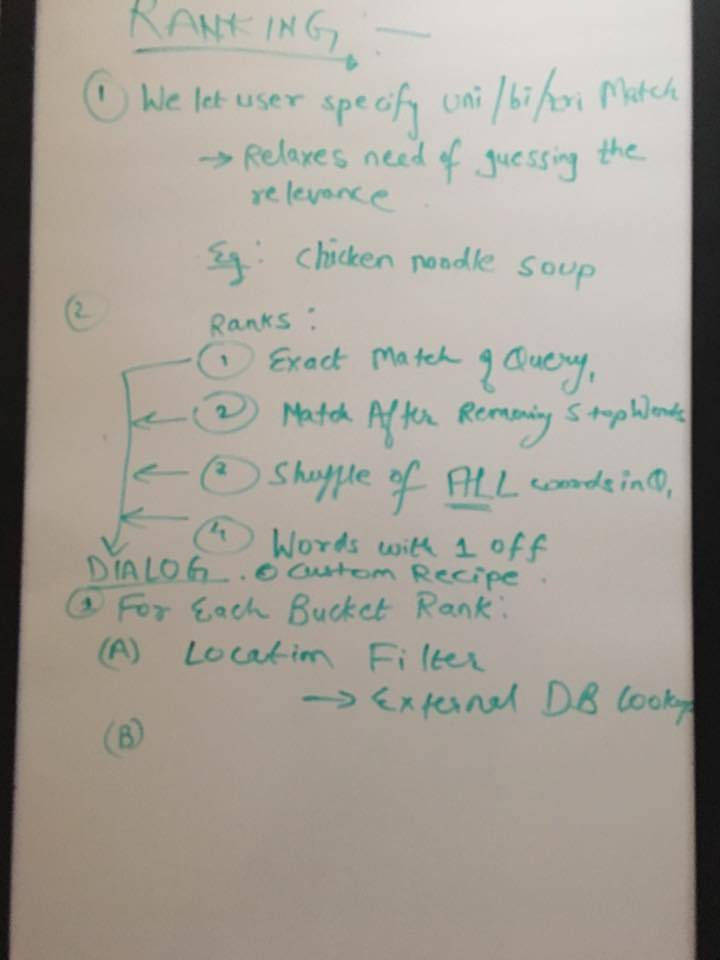 RANKING :—
① We let user specify uni/bi/tri Match
→ Relaxes need of guessing the
relevance.
Eg: Chicken noodle soup
②
Ranks:
① Exact Match of Query,
② Match After Removing StopWords
③ Shuffle of ALL words in Q,
④ Words with 1 off
DIALOG. Custom Recipe.
③ For Each Bucket Rank:
(A) Location Filter
→ External DB lookup
(B)